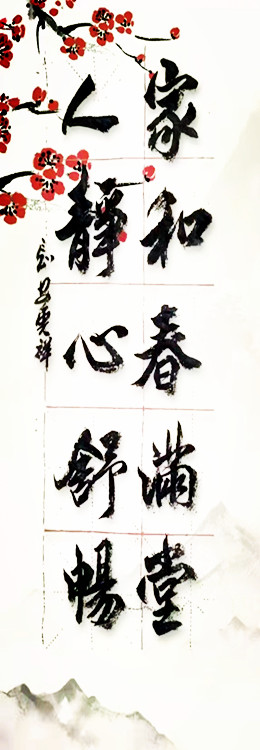 家和春滿堂
人靜心舒暢